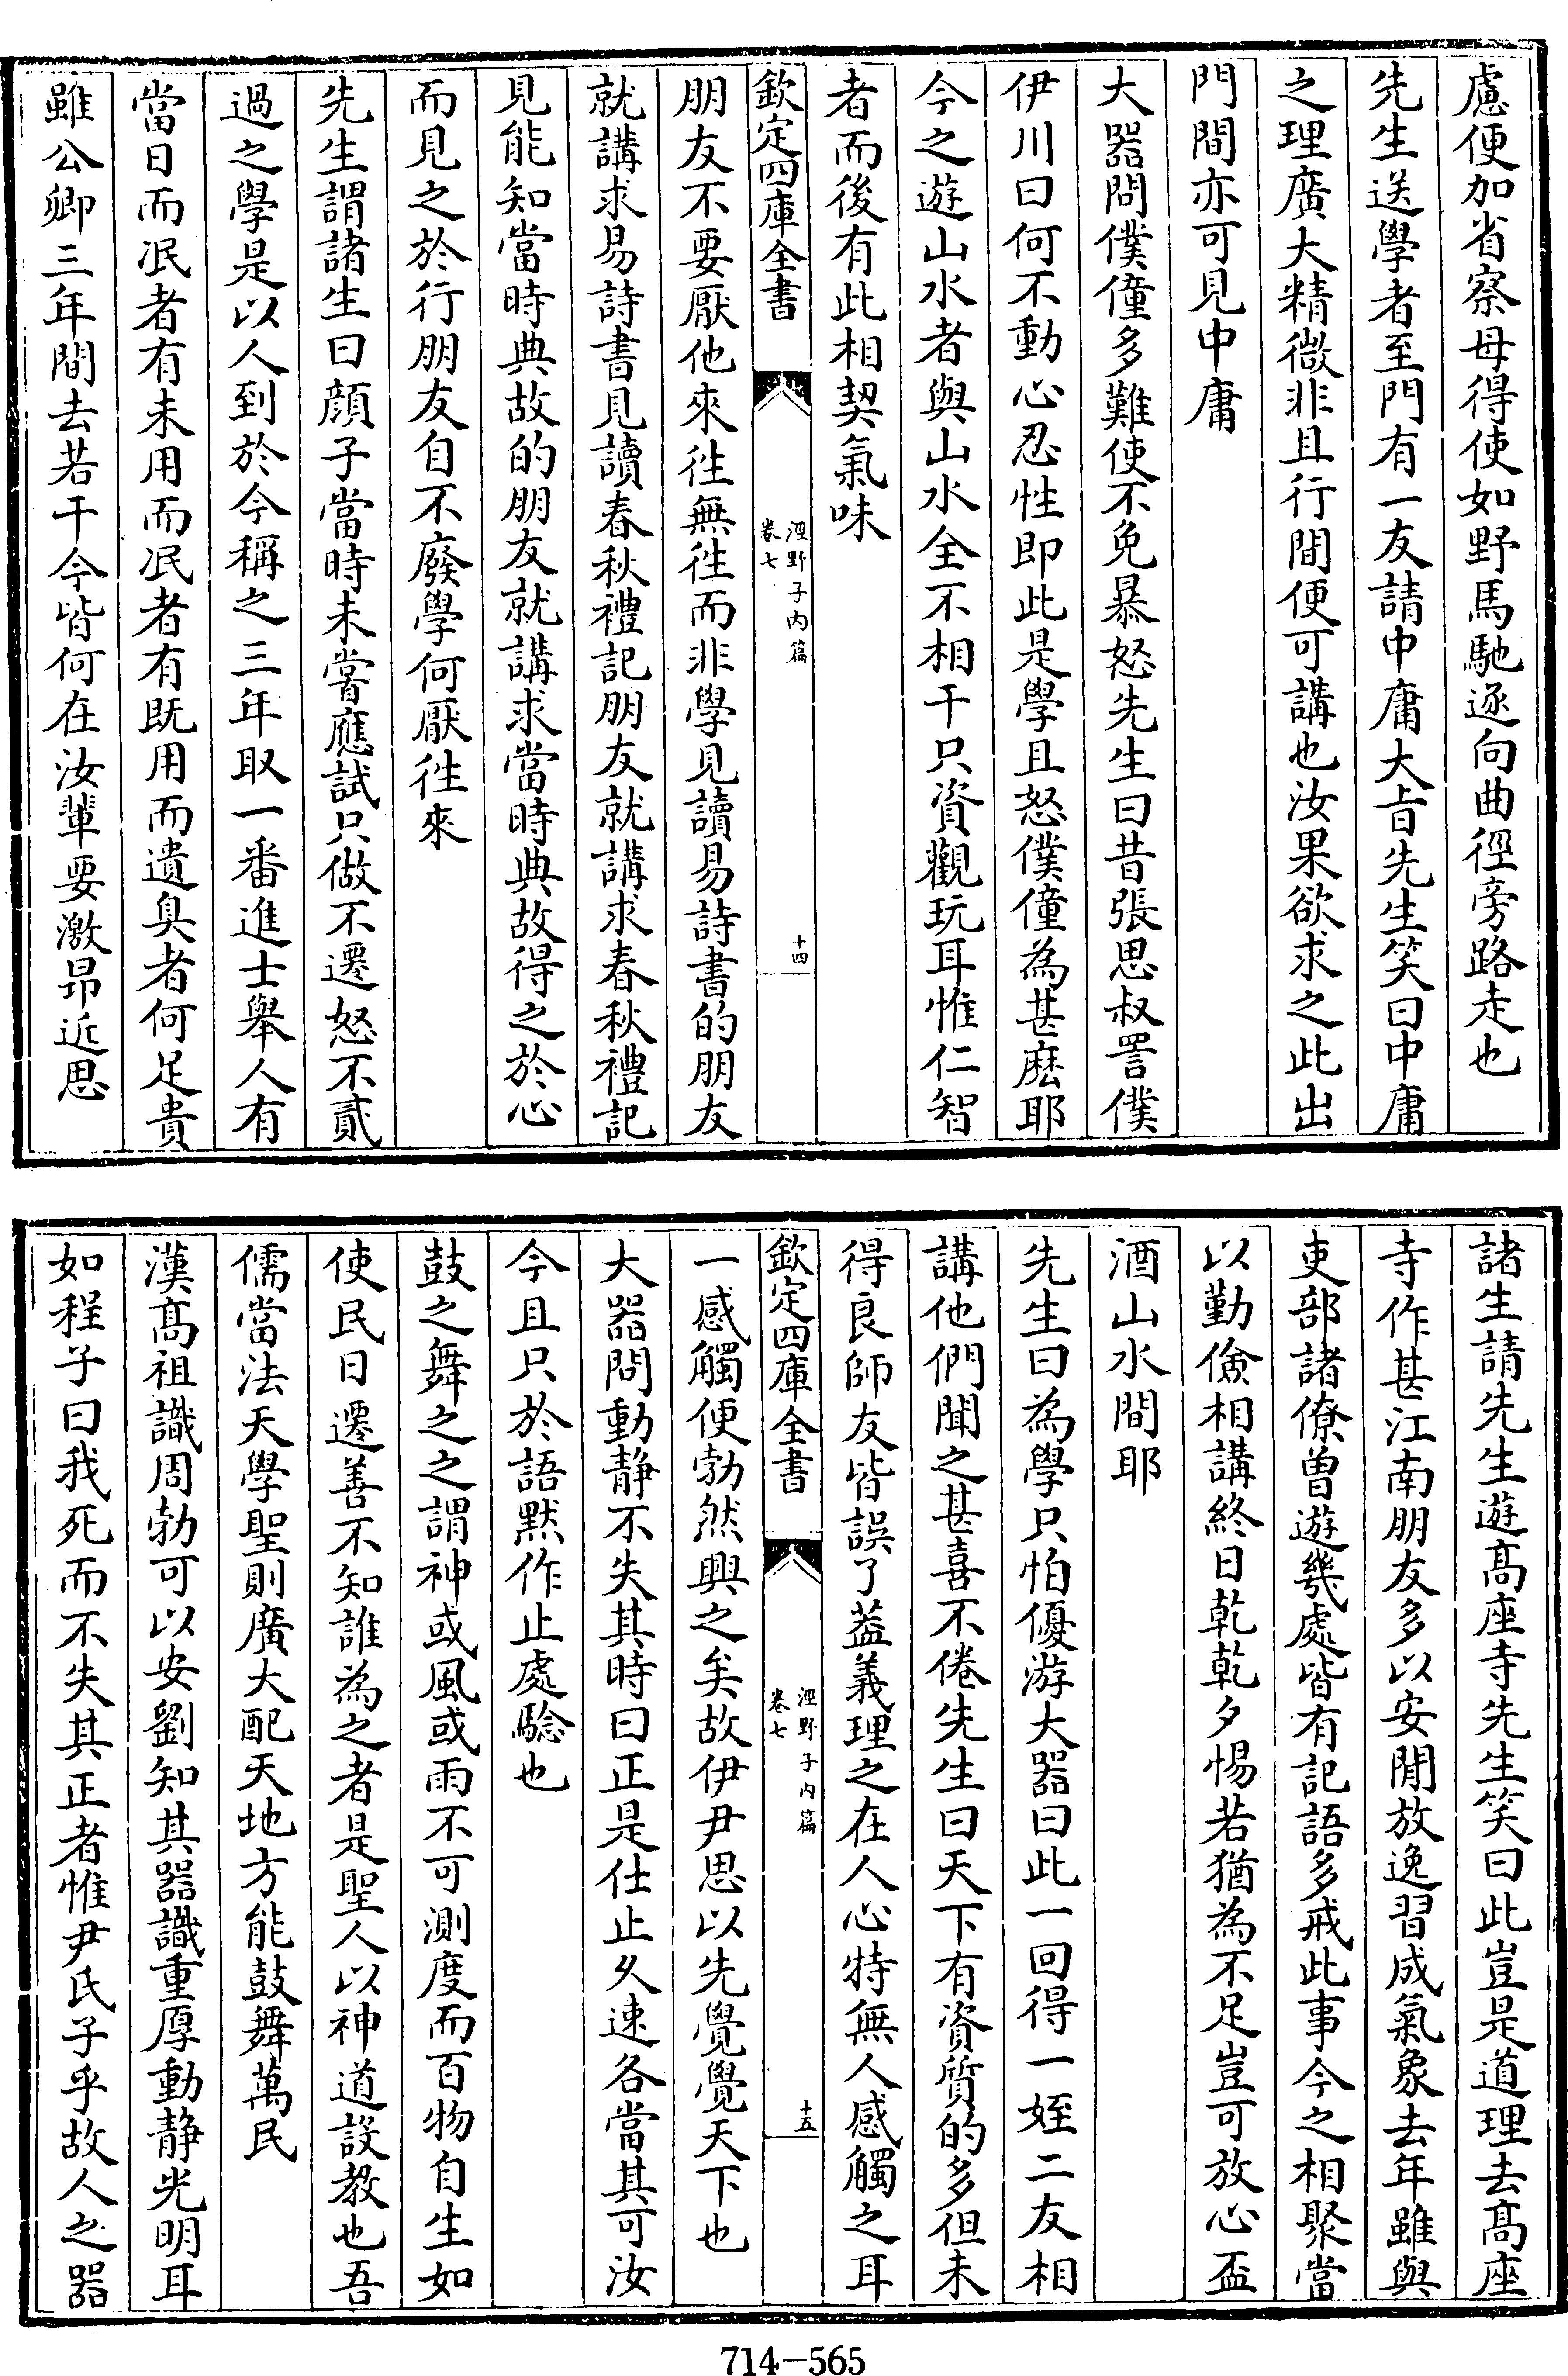 慮便加省察毋得使如野馬馳逐向曲徑旁路走也
先生送學者至門有一友請中庸大旨先生笑曰中庸
之理廣大精微非且行間便可講也汝果欲求之此出
門間亦可見中庸
大器問僕僮多難使不免暴怒先生曰昔張思叔詈僕
伊川曰何不動心忍性即此是學且怒僕僮為甚麽耶
今之遊山水者與山水全不相干只資觀玩耳惟仁智
者而後有此相契氣味
欽定四庫全書
涇野子内篇
卷七
十四
朋友不要厭他來徃無徃而非學見讀易詩書的朋友
就講求易詩書見讀春秋禮記朋友就講求春秋禮記
見能知當時典故的朋友就講求當時典故得之於心
而見之於行朋友自不廢學何厭徃來
先生謂諸生曰顔子當時未嘗應試只做不遷怒不貳
過之學是以人到於今稱之三年取一番進士舉人有
當日而冺者有未用而冺者有既用而遺臭者何足貴
雖公卿三年間去若干今皆何在汝輩要激昻近思
諸生請先生遊髙座寺先生笑曰此豈是道理去髙座
寺作甚江南朋友多以安閒放逸習成氣象去年雖與
吏部諸僚曽遊幾處皆有記語多戒此事今之相聚當
以勤儉相講終日乾乾夕惕若猶為不足豈可放心盃
酒山水間耶
先生曰為學只怕優游大器曰此一回得一姪二友相
講他們聞之甚喜不倦先生曰天下有資質的多但未
得良師友皆誤了葢義理之在人心特無人感觸之耳
欽定四庫全書
涇野子内篇
卷七
十五
一感觸便勃然興之矣故伊尹思以先覺覺天下也
大器問動靜不失其時曰正是仕止久速各當其可汝
今且只於語黙作止處驗也
鼓之舞之之謂神或風或雨不可測度而百物自生如
使民日遷善不知誰為之者是聖人以神道設教也吾
儒當法天學聖則廣大配天地方能鼓舞萬民
漢髙祖識周勃可以安劉知其器識重厚動靜光明耳
如程子曰我死而不失其正者惟尹氏子乎故人之器
714-565